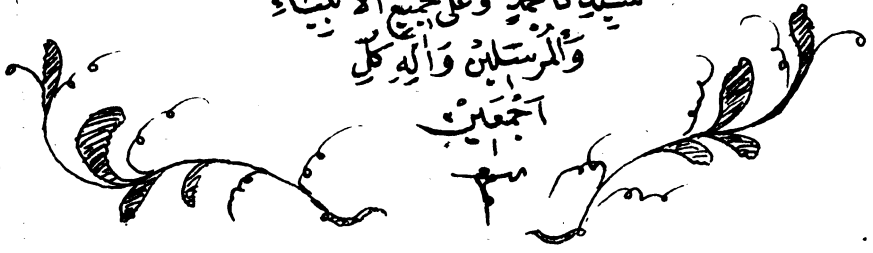 سَيِّدِنَا مُحَمَّدٍ وَعَلَى جَمِيعِ الْأَنْبِيَاءِ
وَالْمُرْسَلِيْنَ وَآلِهِ كُلِّ
اَجْمَعِيْنَ